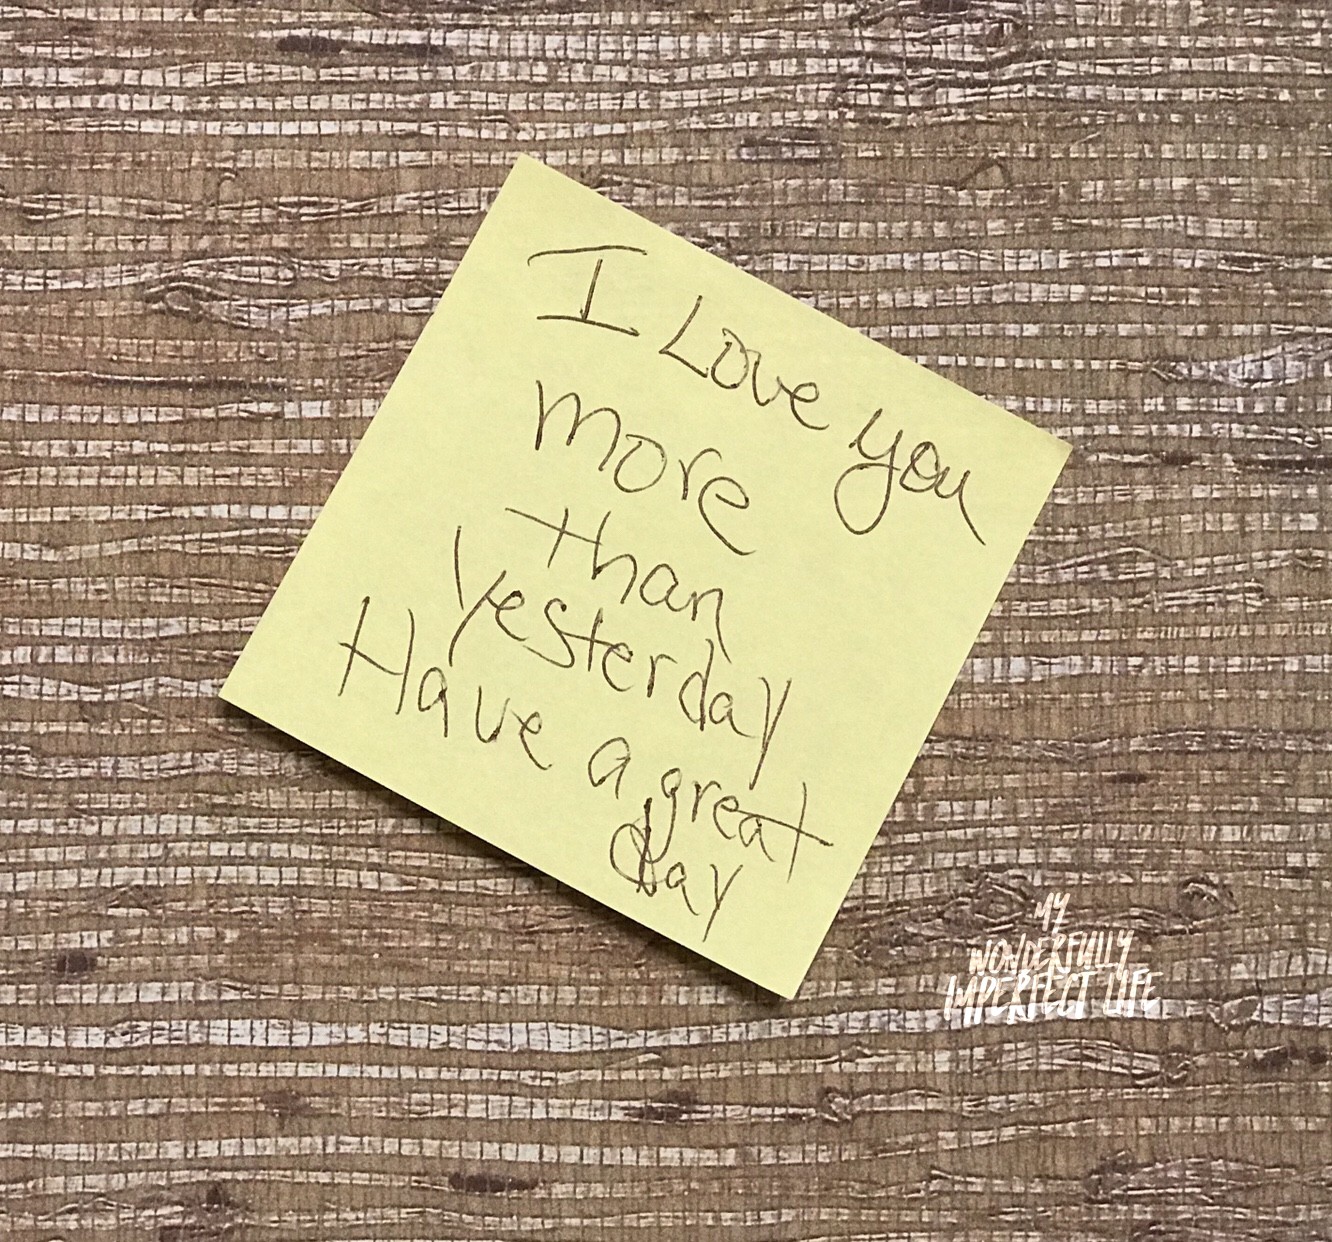 I Love you
more
than
yesterday
Have a great
day
MY
WONDERFULLY
IMPERFECT LIFE